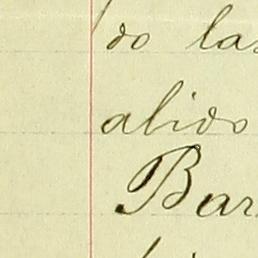 do las
alido
Bar